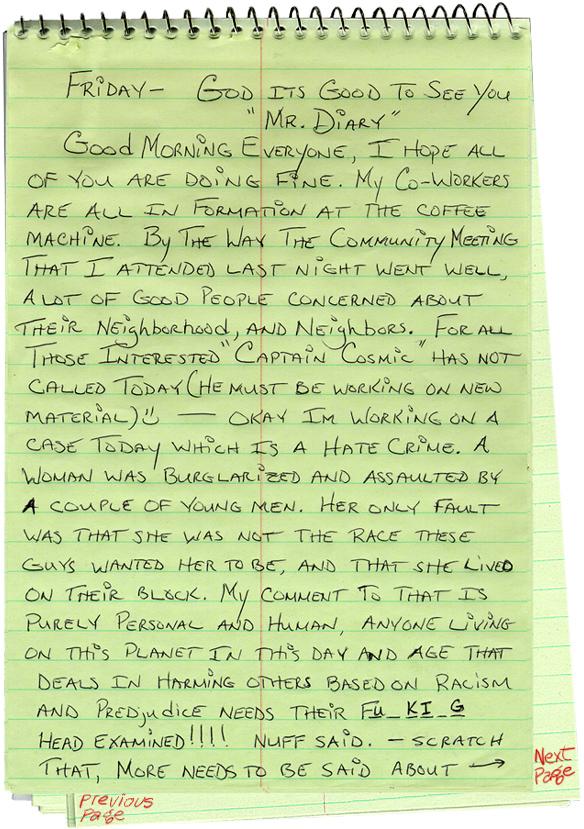 FRIDAY- GOD ITS GOOD TO SEE YOU
"MR. DIARY"
GOOD MORNING EVERYONE, I HOPE ALL
OF YOU ARE DOING FINE. MY CO-WORKERS
ARE ALL IN FORMATION AT THE COFFEE
MACHINE. BY THE WAY THE COMMUNITY MEETING
THAT I ATTENDED LAST NIGHT WENT WELL,
A LOT OF GOOD PEOPLE CONCERNED ABOUT
THEIR NEIGHBORHOOD, AND NEIGHBORS. FOR ALL
THOSE INTERESTED "CAPTAIN COSMIC" HAS NOT
CALLED TODAY (HE MUST BE WORKING ON NEW
MATERIAL) — OKAY IM WORKING ON A
CASE TODAY WHICH IS A HATE CRIME. A
WOMAN WAS BURGLARIZED AND ASSAULTED BY
A COUPLE OF YOUNG MEN. HER ONLY FAULT
WAS THAT SHE WAS NOT THE RACE THESE
GUYS WANTED HER TO BE, AND THAT SHE LIVED
ON THEIR BLOCK. MY COMMENT TO THAT IS
PURELY PERSONAL AND HUMAN, ANYONE LIVING
ON THIS PLANET IN THIS DAY AND AGE THAT
DEALS IN HARMING OTHERS BASED ON RACISM
AND PREDJUDICE NEEDS THEIR FU_KI_G
HEAD EXAMINED!!!! NUFF SAID. - SCRATCH
THAT, MORE NEEDS TO BE SAID ABOUT →
Next
Page
Previous
Page